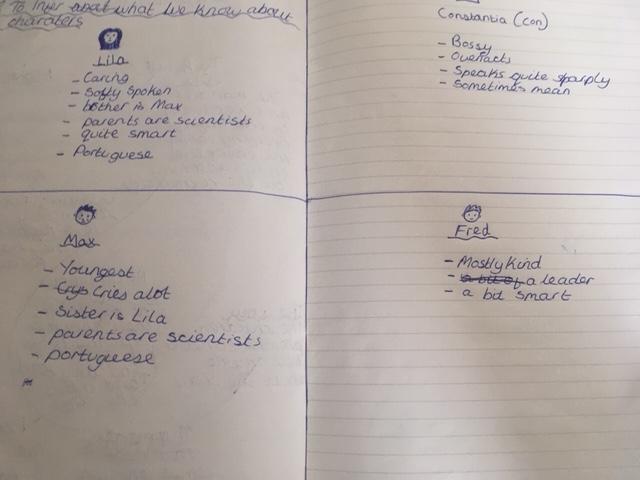 To Infer about what we know about
charaters
Lila
- Caring
- Softy spoken
- brother is Max
- parents are scientists
- quite smart
- Portuguese
Constantia (Con)
- Bossy
- Overacts
- Speaks quite sharply
- Sometimes mean
Max
- Youngest
- Crys Cries alot
- Sister is Lila
- parents are scientists
- portuguese
Fred
- Mostly Kind
- a bit of a leader
- a bit smart